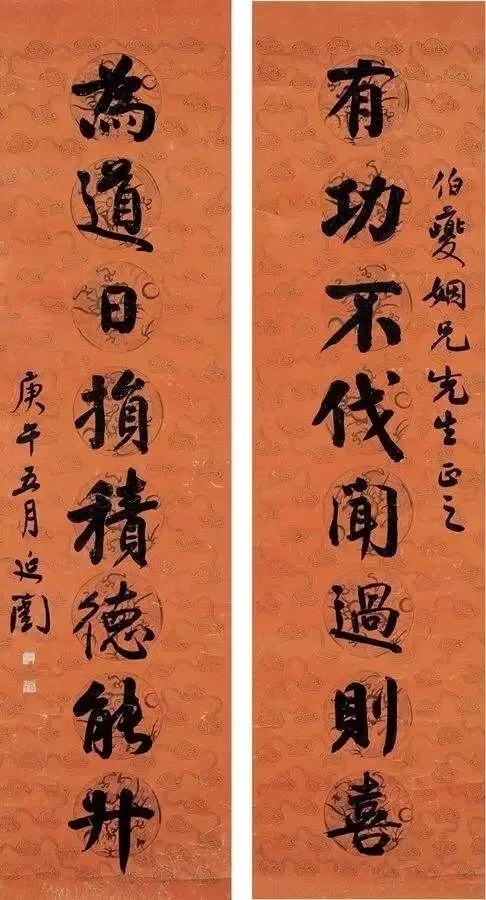 伯夔姻兄先生正之
有功不伐聞過則喜
為道日損積德能升
庚午五月延闓